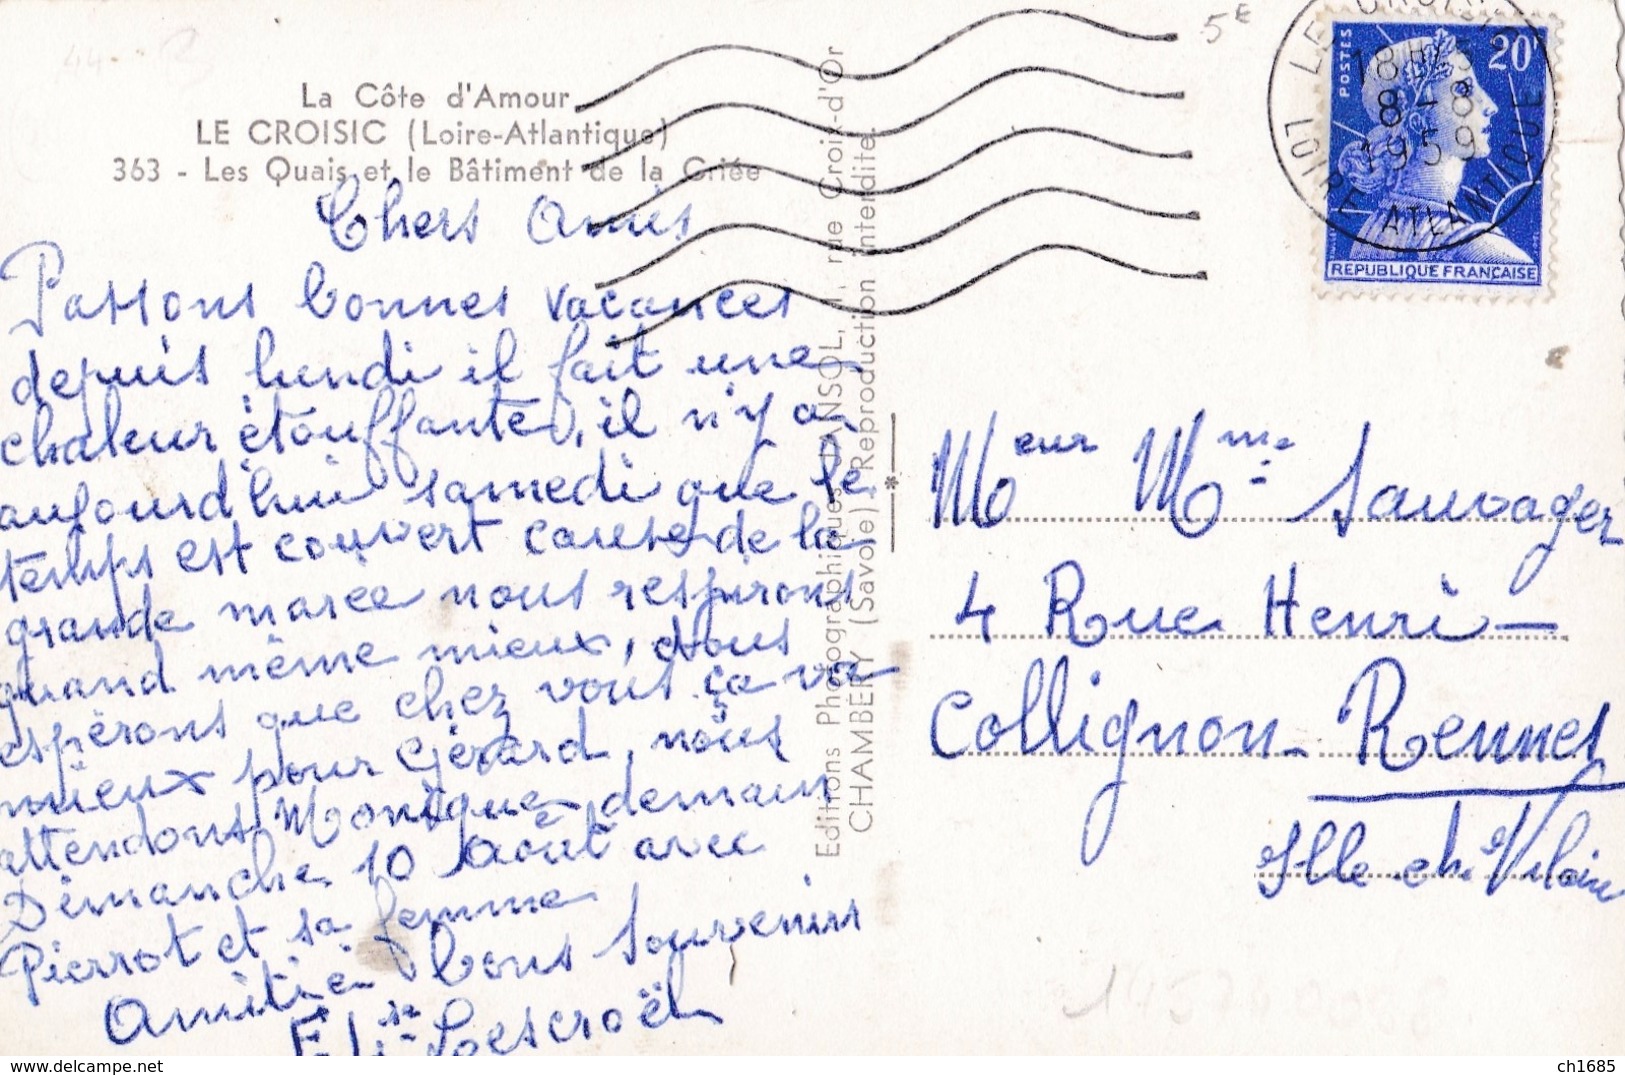 La Côte d'Amour
LE CROISIC (Loire-Atlantique)
363 - Les Quais et le Bâtiment de la Criée
Chers Amis
Passons bonnes vacances
depuis lundi il fait une
chaleur étouffante, il n'y a
aujourd'hui samedi que le
temps est couvert cause de la
grande marée nous respirons
quand même mieux, nous
espérons que chez vous ça va
mieux pour Gérard, nous
attendons Monique demain
Dimanche 10 Août avec
Pierrot et sa femme
Amitié bons souvenirs
Lescroël
Editions Photographiques JANSOL, 1, rue Croix-d'Or
CHAMBÉRY (Savoie) Reproduction interdite.
5E
LE CROISIC
18H15
8-8
1959
LOIRE ATLANTIQUE
POSTES
20F
REPUBLIQUE FRANÇAISE
Meur Mme Sauvager
4 Rue Henri -
Collignon - Rennes
Ille et Vilaine
ch1685